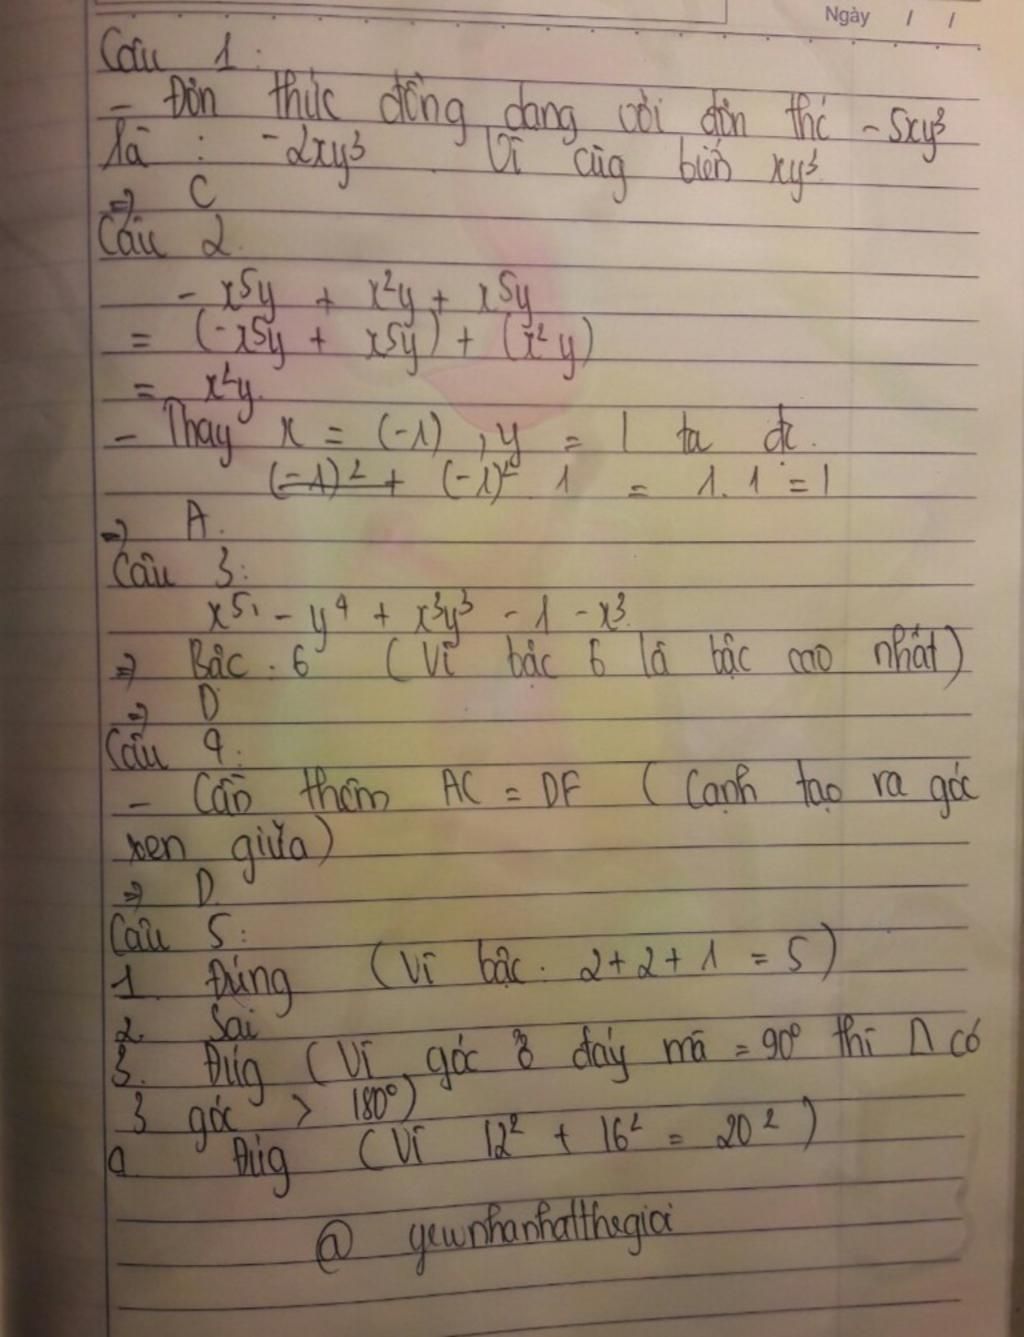 Ngày / /
Câu 1:
- Đơn thức đồng dạng với đơn thí -5xy³
là : -2xy³ Vì cùg biến xy³
=> C
Câu 2.
- x⁵y + x²y + x⁵y
= (-x⁵y + x⁵y) + (x²y)
= x²y.
- Thay x = (-1) , y = 1 ta đc.
(-1)² + (-1)² 1 = 1. 1 = 1
=> A.
Câu 3:
x⁵ - y⁴ + x³y³ - 1 - x³
=> Bậc : 6 (Vì bậc 6 là bậc cao nhất)
=> D
Câu 4:
- Cần thêm AC = DF (Cạnh tạo ra góc
xen giữa)
=> D.
Câu 5:
1. Đúng (Vì bậc. 2+2+1 = 5)
2. Sai
3. Đúg (Vì góc ở đáy mà = 90° thì Δ có
3 góc > 180°)
Đúg (Vì 12² + 16² = 20²)
@ yewnhanhatthegioi